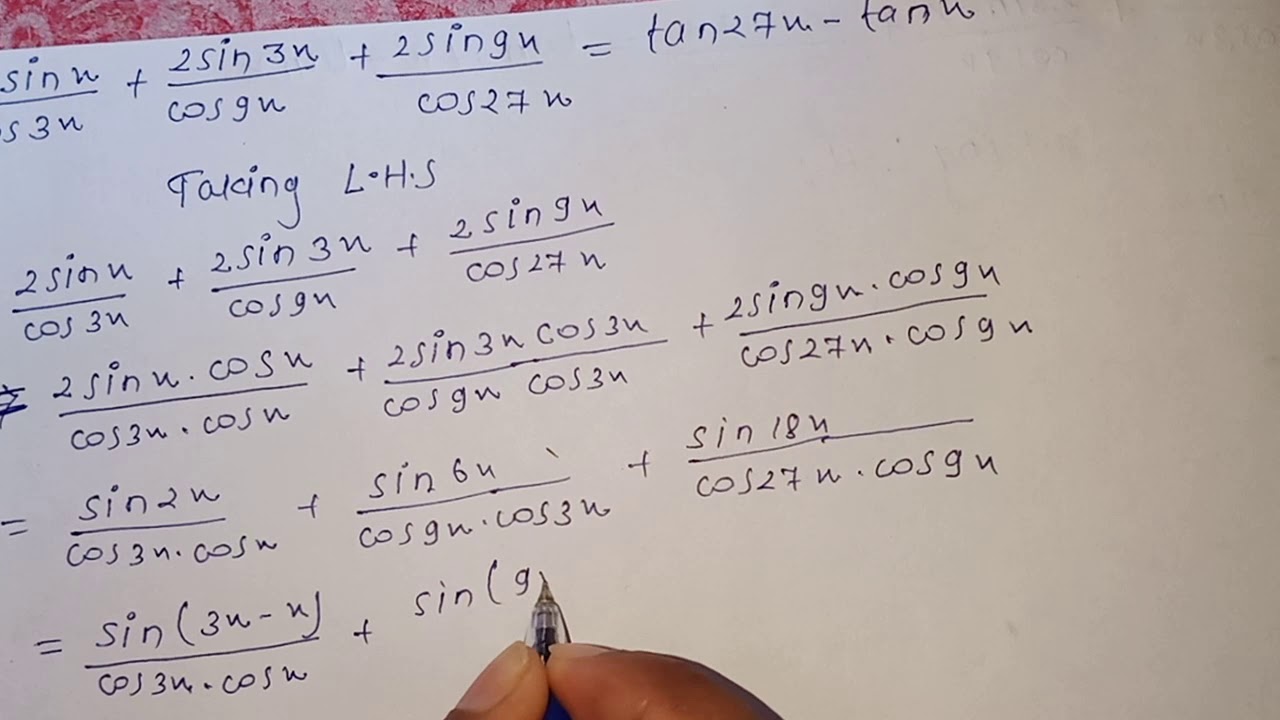 sin x/cos 3x + 2sin 3x/cos 9x + 2sin 9x/cos 27x = tan 27x - tan x
Taking L.H.S
2sin x/cos 3x + 2sin 3x/cos 9x + 2sin 9x/cos 27x
= 2sin x . cos x/cos 3x . cos x + 2sin 3x cos 3x/cos 9x cos 3x + 2sin 9x . cos 9x/cos 27x . cos 9x
= sin 2x/cos 3x . cos x + sin 6x/cos 9x . cos 3x + sin 18x/cos 27x . cos 9x
= sin (3x - x)/cos 3x . cos x + sin (9